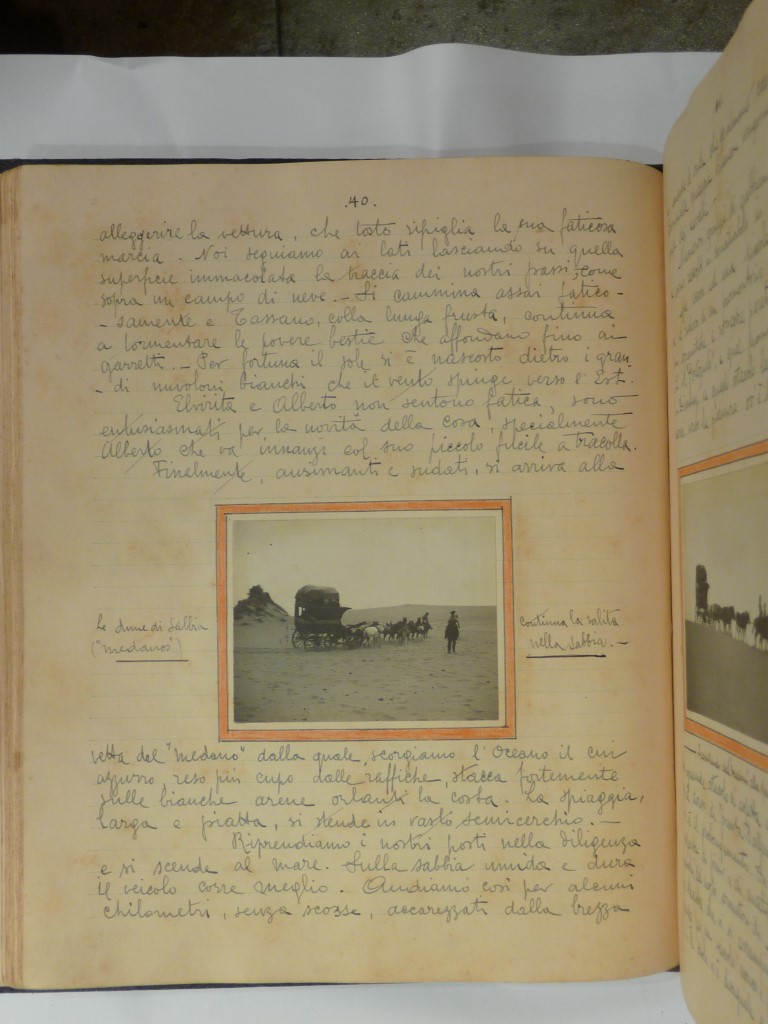 .40.
alleggerire la vettura, che tosto ripiglia la sua faticosa
marcia. Noi seguiamo ai lati lasciando su quella
superficie immacolata la traccia dei nostri passi, come
sopra un campo di neve. - Si cammina assai fatico-
- samente e Tassano, colla lunga frusta, continua
a tormentare le povere bestie che affondano fino ai
garretti. - Per fortuna il sole si è nascosto dietro i gran
- di nuvoloni bianchi che il vento spinge verso l'Est.
Elvirita e Alberto non sentono fatica, sono
entusiasmati per la novità della cosa, specialmente
Alberto che va innanzi col suo piccolo fucile a tracolla.
Finalmente, ansimanti e sudati, si arriva alla
Le dune di sabbia
("medanos")
continua la salita
nella sabbia. -
vetta del "medano" dalla quale scorgiamo l'Oceano il cui
azzurro, reso più cupo dalle raffiche, stacca fortemente
sulle bianche arene orlanti la costa. La spiaggia,
larga e piatta, si stende in vasto semicerchio. -
Riprendiamo i nostri posti nella diligenza
e si scende al mare. Sulla sabbia umida e dura
il veicolo corre meglio. Andiamo così per alcuni
chilometri, senza scosse, accarezzati dalla brezza